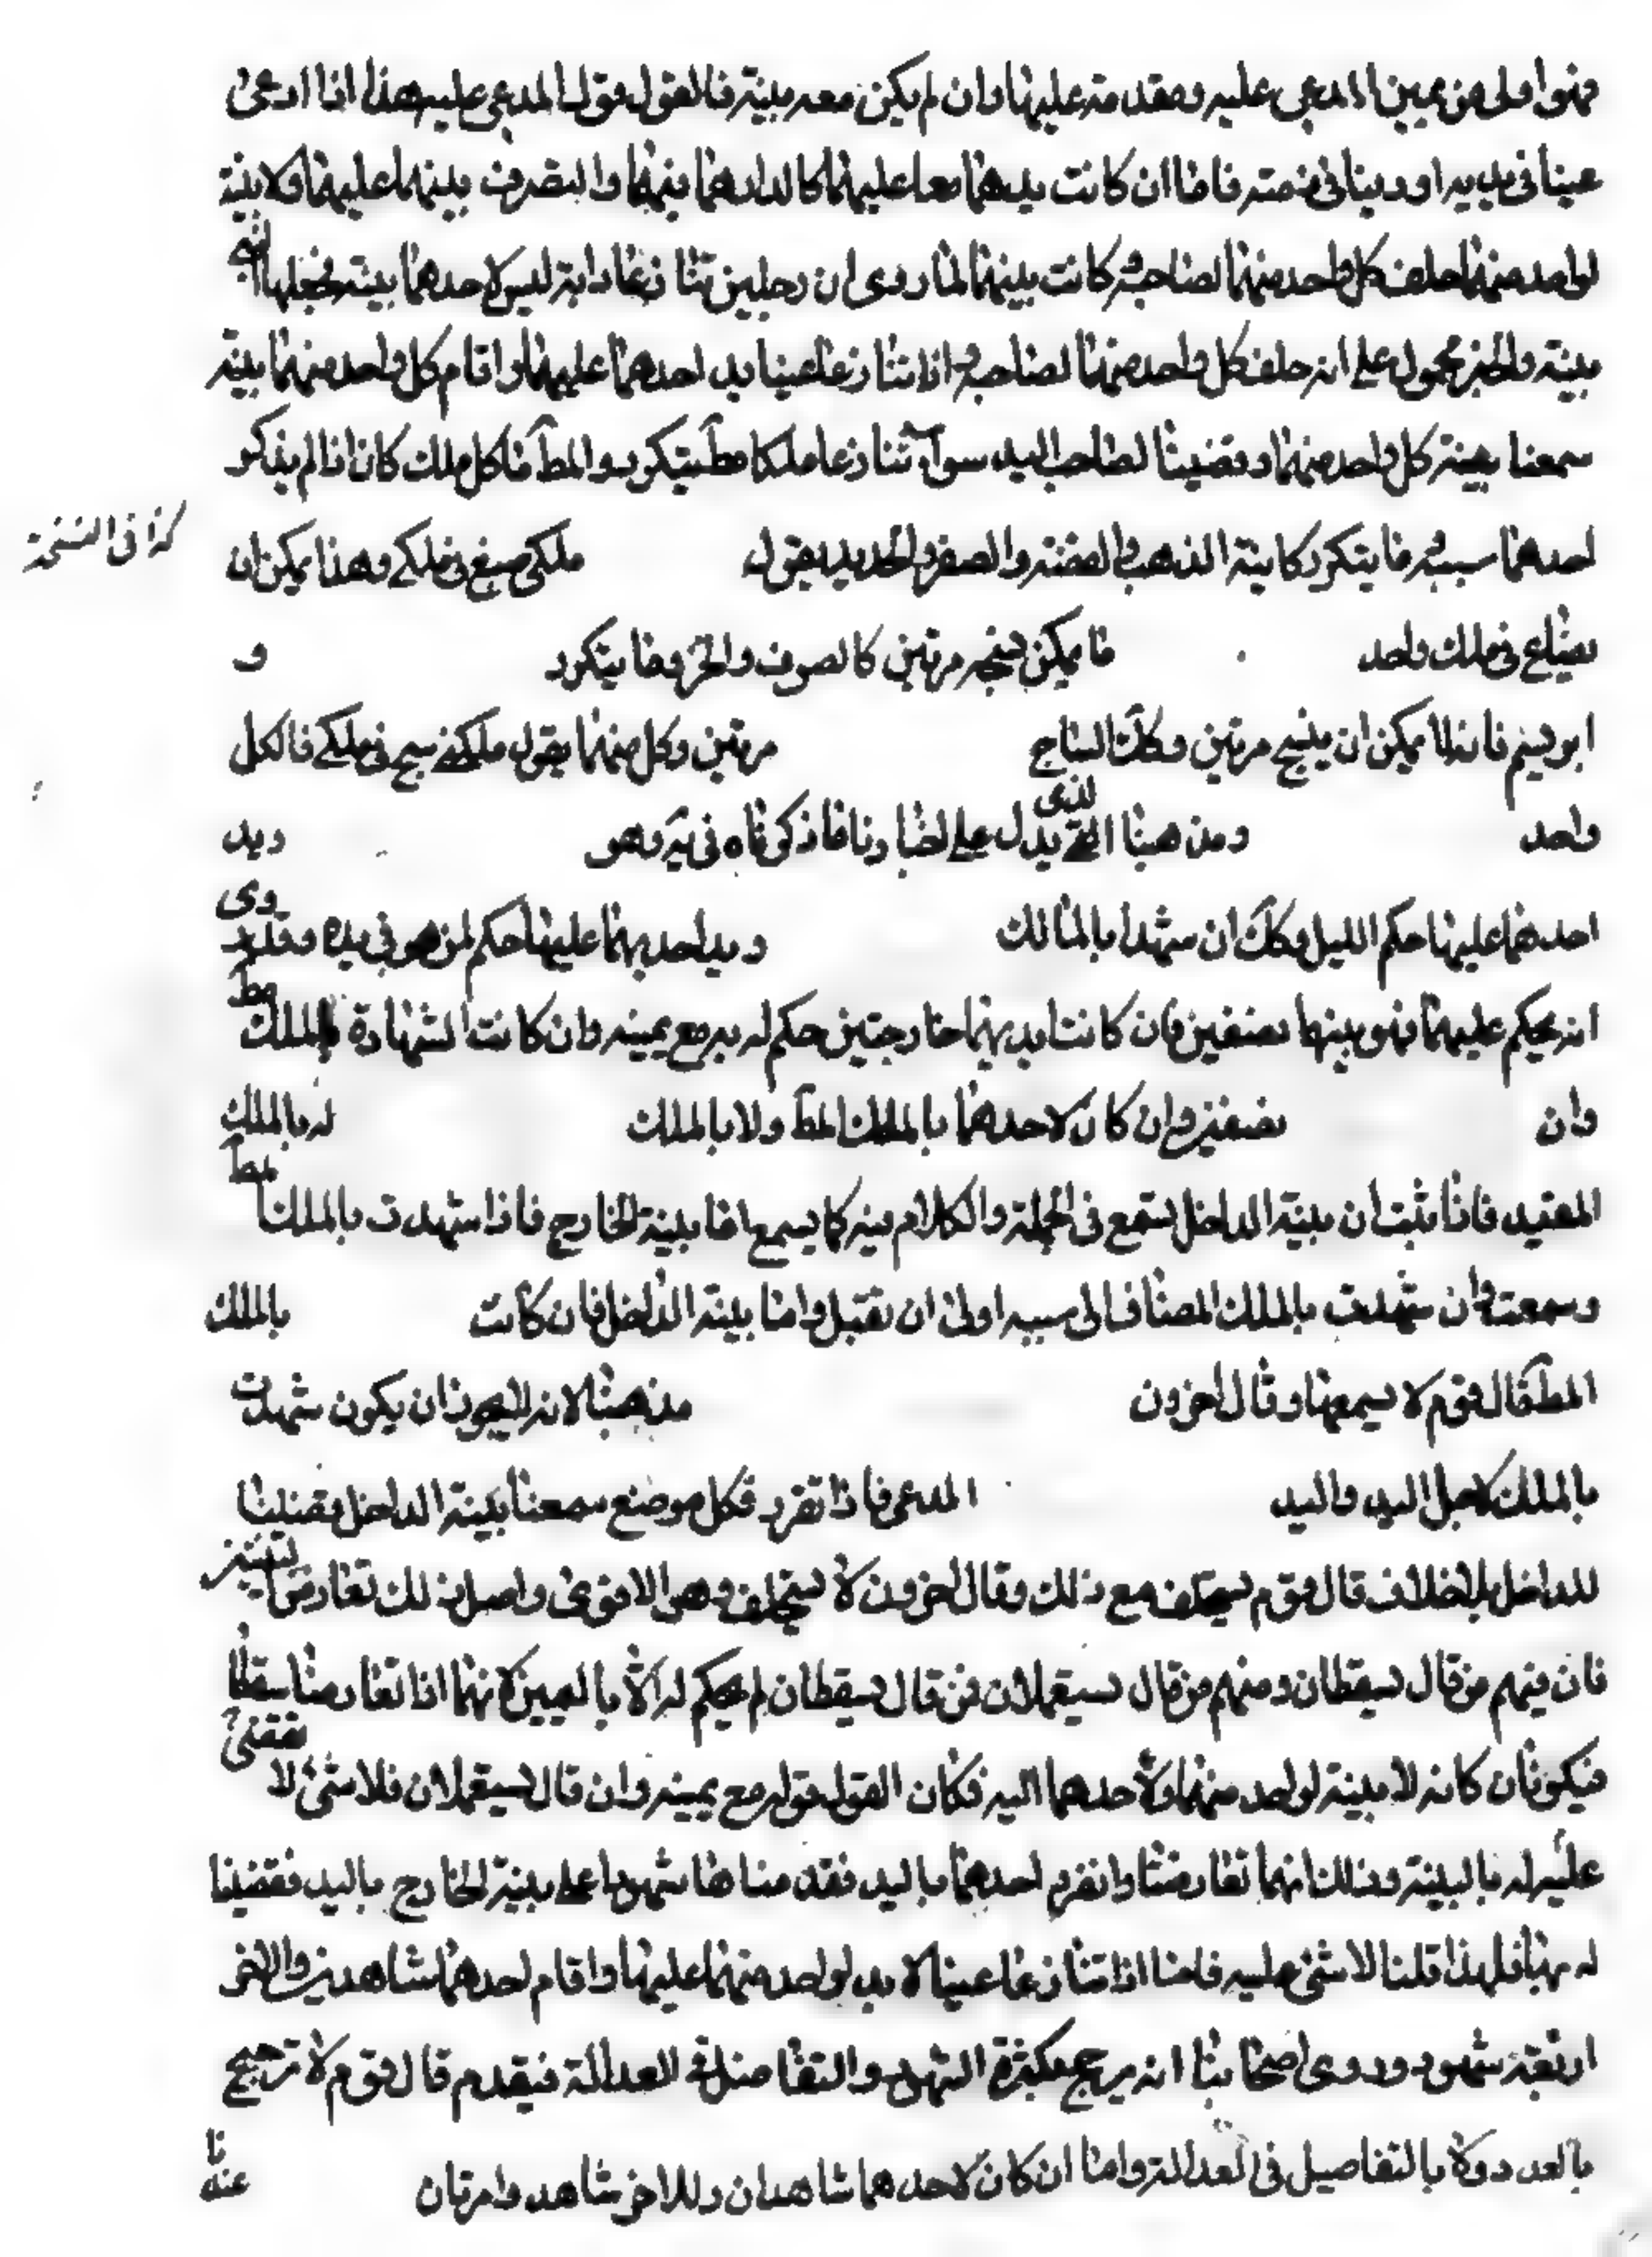 فهو اولى من يمين المدعى عليه ومقدمة عليها وان لم يكن معه بينة فالقول قول المدعى عليه هذا اذا ادعى
عينا فى يديه او دينا فى ذمته فاما ان كانت يدهما معا عليها كالدار هما فيها والتصرف بينهما عليها ولا بينة
لواحد منهما حلف كل واحد منهما لصاحبه كانت بينهما لما روى ان رجلين تنازعا دابة ليس لاحدهما بينة فجعلها النبى
بينهما والخبر محمول على انه حلف كل واحد منهما لصاحبه اذا تنازعا عينا يد احدهما عليها واقام كل واحد منهما بينة
سمعنا بينة كل واحد منهما وقضينا لصاحب اليد سواء تنازعا ملكا مطلقا يتكرر والمط فاكل ملك كان اذا لم يذكر
احدهما سببه فما يتكرر كانية الذهب والفضة والصفر والحديد يقول ملكى صيغ فى ملكى وهذا يمكن ان
كذا فى النسخة
يصاغ فى ملك واحد ما يمكن نسجه مرتين كالصوف والخز وما يتكرر و
ابريسم فانه لا يمكن ان ينسج مرتين وكك النتاج مرتين وكل منهما يقول ملكى نسج فى ملكى فالكل
واحد ومن هينا الذى يدل على اخبارنا ما ذكرناه فى يَه وهو ويد
احدهما عليها حكم لليد وكك ان شهدا بالمالك ويد احديهما عليها حكم لمن هو فى يده وقد روى
انه يحكم عليهما فهو بينهما نصفين فان كانت ايديهما خارجتين حكم له به مع يمينه وان كانت الشهادة بالملك المط
وان نصفين وان كان لاحدهما بالملك المط ولا بالملك له بالملك
المقيد فاذا ثبت ان بينة الداخل تسمع فى الجملة والكلام فيه كما يسمع اما بينة الخارج فاذا شهدت بالملك المط
وسمعت وان شهدت بالملك المضاف الى سببه اولى ان تقبل واما بينة الداخل فان كانت بالملك
المط قال قوم لا يسمعها وقال اخرون مذهبنا لانه يجوز ان يكون شهدت
بالملك لاجل اليد واليد المدعى فاذا تقرر فكل موضع سمعنا بينة الداخل وقضينا
للداخل بلا خلاف قال قوم يستحلف مع ذلك وقال اخرون لا يستحلف وهو الاقوى واصل ذلك تعارض البينتين
فان فيهم من قال يسقطان ومنهم من قال يستعملان فمن قال يسقطان لم يحكم له الا باليمين لانهما اذا تعارضتا سقطتا
فيكونان كانه لا بينة لواحد منهما ولاحدهما اليد فكان القول قوله مع يمينه وان قال يستعملان فلا شئ لا نقضى
عليه له بالبينة وذلك انهما تعارضتا وانفرد احدهما باليد فقدمناها شهودا على بينة الخارج باليد فقضينا
له بها فلهذا قلنا لا شئ عليه فاما اذا تنازعا عينا لا يد لواحد منهما عليها واقام احدهما شاهدين والاخر
اربعة شهود وروى اصحابنا انه يرجح بكثرة الشهود والتفاضل فى العدالة فيقدم قال قوم لا ترجيح
بالعدد ولا بالتفاصيل فى العدالة واما ان كان لاحدهما شاهدان وللاخر شاهد وامرتان عندنا